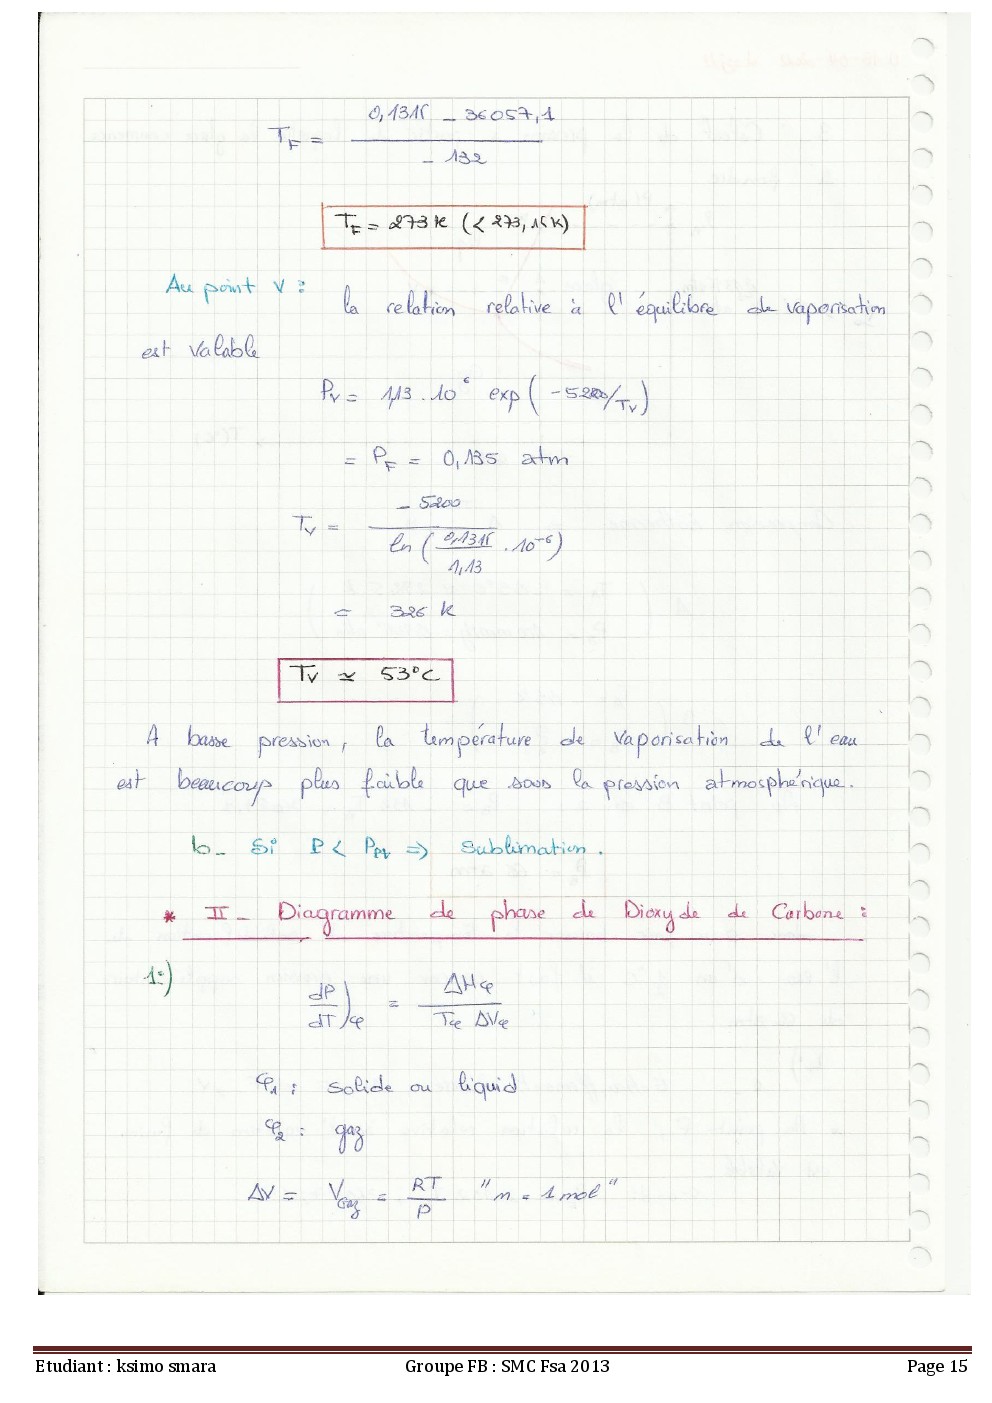 T_F = (0,1315 - 36057,1) / (- 132)
T_F = 273 K (< 273,15 K)
Au point V :
la relation relative à l'équilibre de vaporisation
est valable
P_V = 1,13 . 10^6 exp ( -5200/T_V )
= P_F = 0,135 atm
T_V = - 5200 / ln ( 0,1315/1,13 . 10^-6 )
= 326 K
T_V ≃ 53°C
A basse pression, la température de vaporisation de l'eau
est beaucoup plus faible que sous la pression atmosphérique.
b - Si P < P_Pt => sublimation.
* II - Diagramme de phase de Dioxyde de Carbone :
1:) dP/dT )φ = ΔHφ / (Tφ ΔVφ)
φ1 : solide ou liquid
φ2 : gaz
ΔV = V_Gaz = RT/P "n = 1 mol"
Etudiant : ksimo smara Groupe FB : SMC Fsa 2013 Page 15